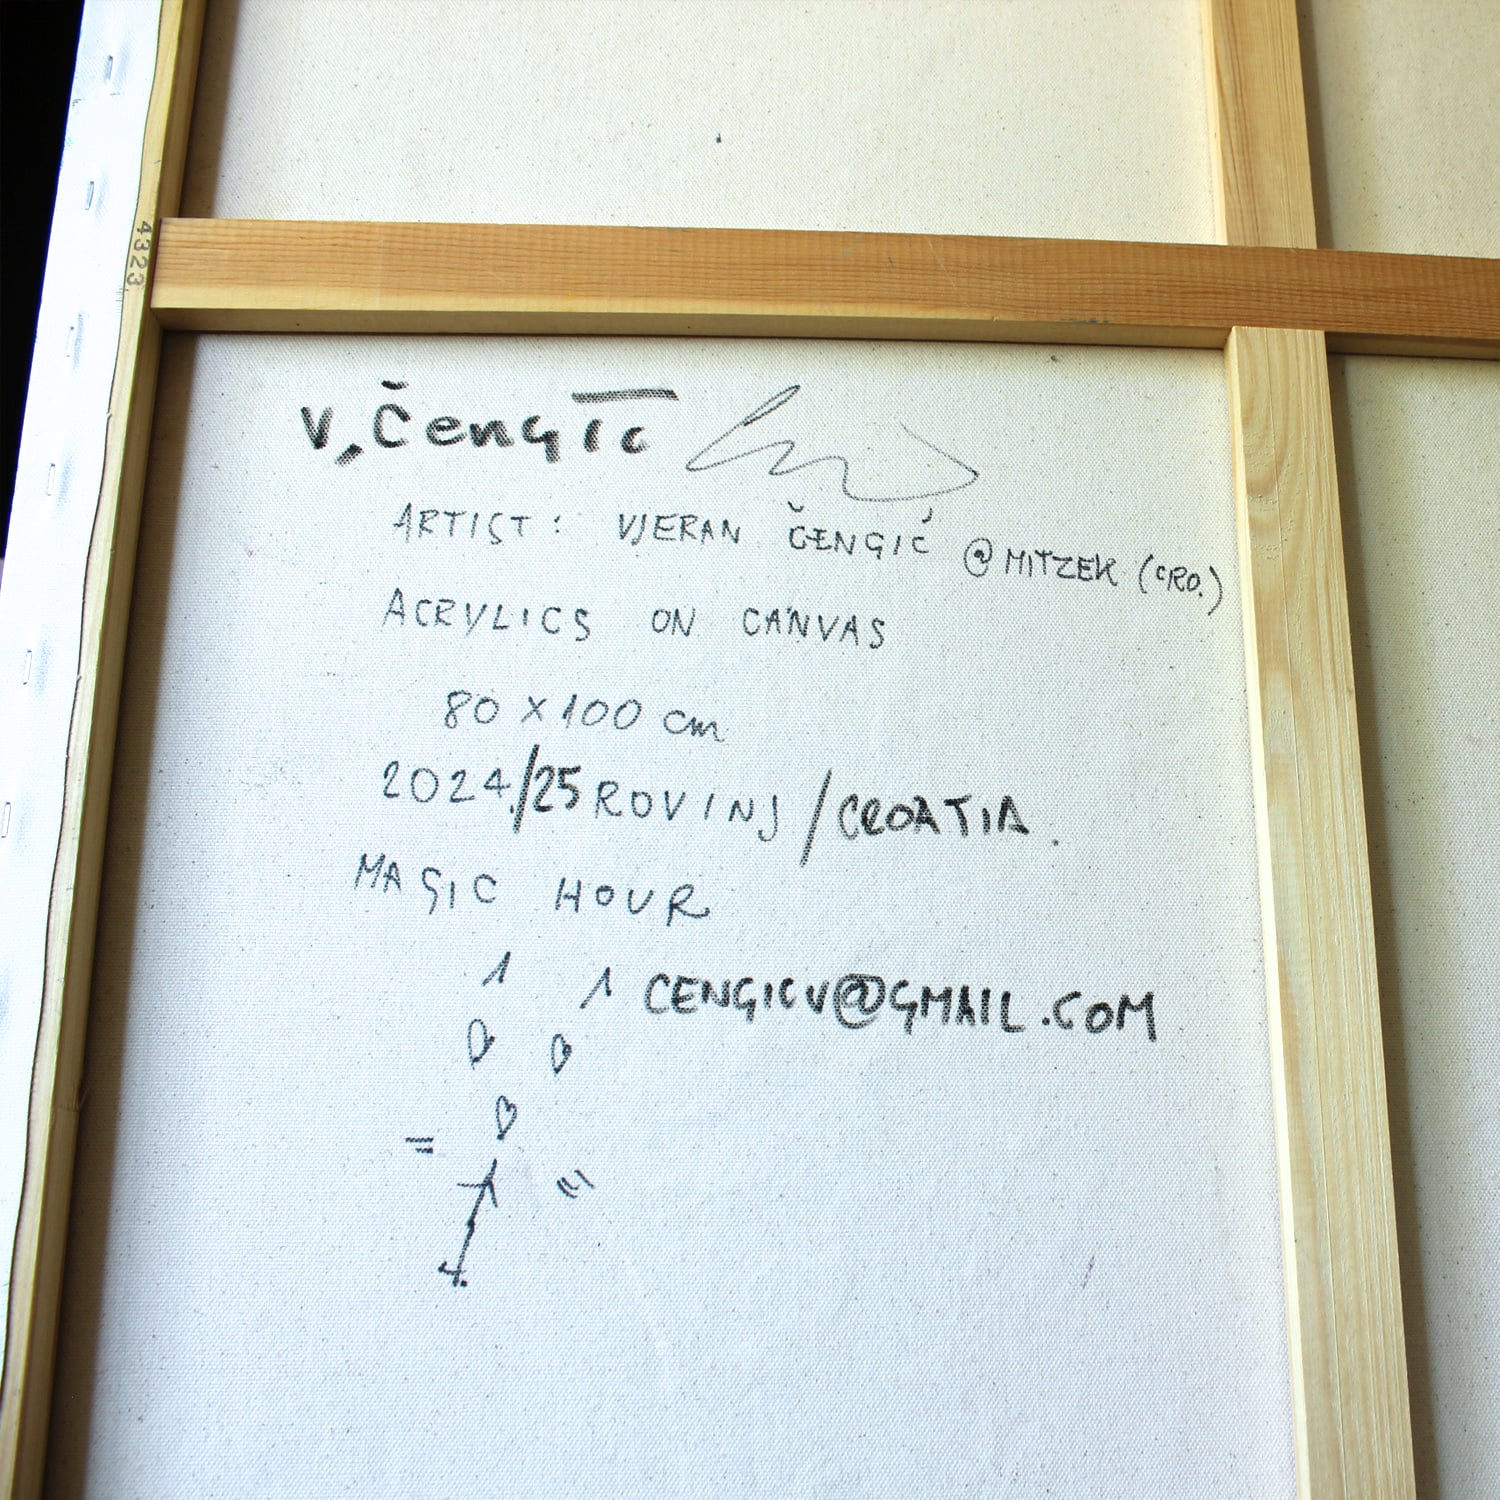 4323
V. Čengić
ARTIST: VJERAN ČENGIĆ @MITZEK (CRO.)
ACRYLICS ON CANVAS
80 x 100 cm
2024./25 ROVINJ / CROATIA.
MAGIC HOUR
CENGICV@GMAIL.COM